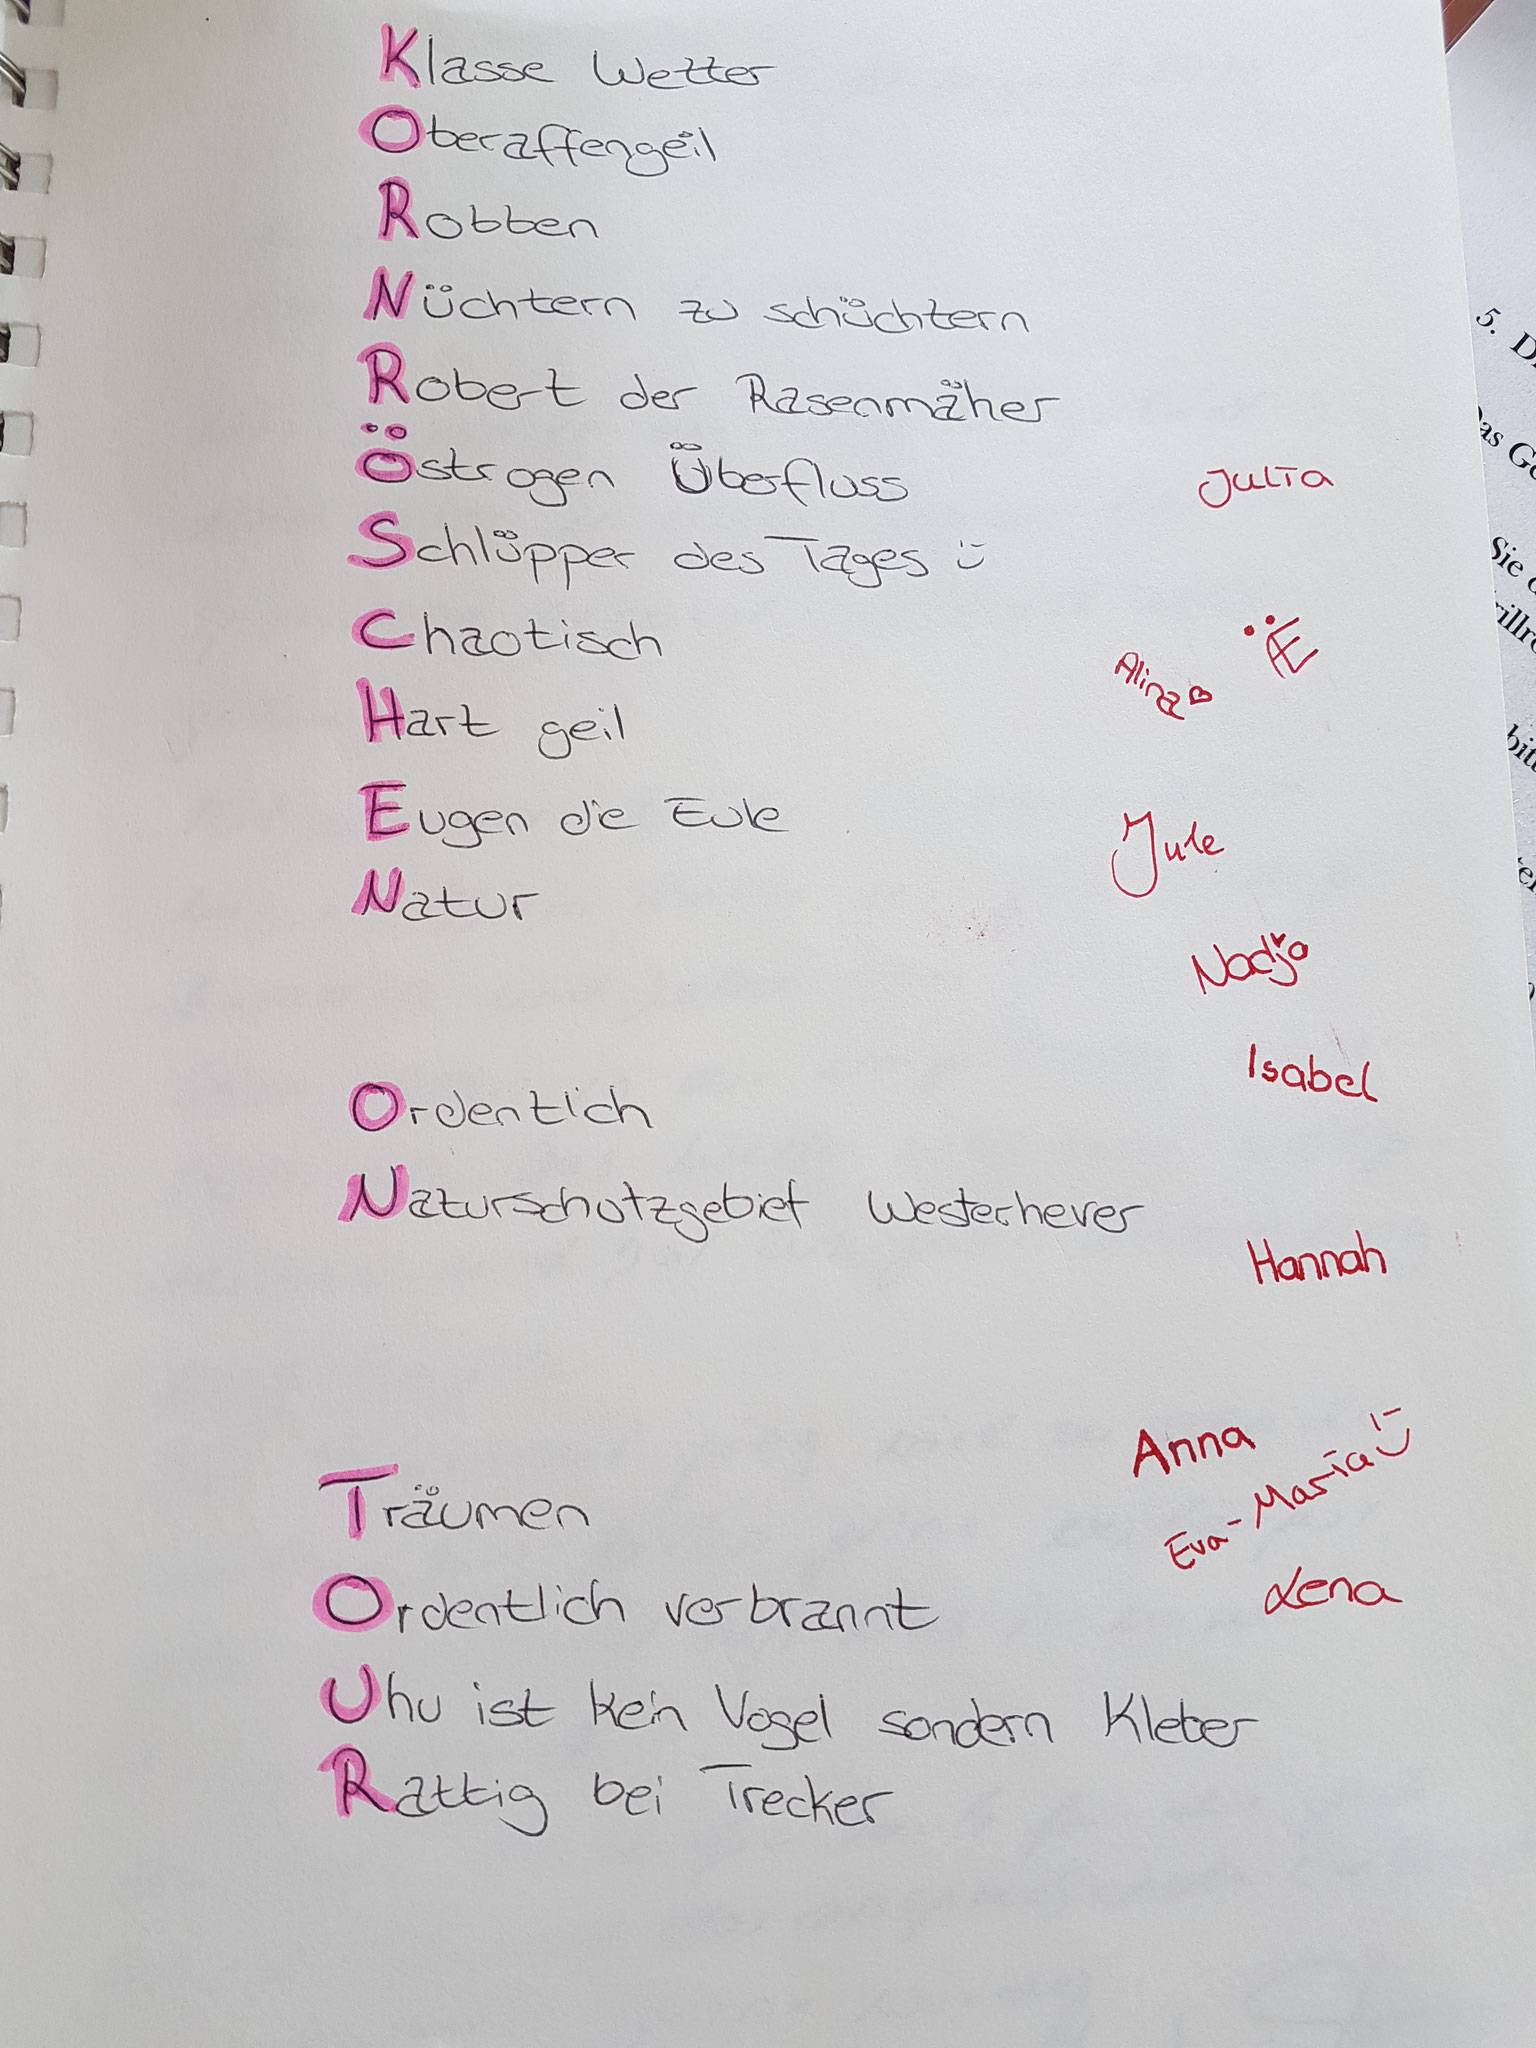 Klasse Wetter
Oberaffengeil
Robben
Nüchtern zu schüchtern
Robert der Rasenmäher
Östrogen Überfluss
Julia
Schlüpper des Tages :)
Chaotisch
Alina ♡
Hart geil
Eugen die Eule
Jule
Natur
Nadja
Isabel
Ordentlich
Naturschutzgebiet Westerhever
Hannah
Anna
Eva-Maria :)
Träumen
Lena
Ordentlich verbrannt
Uhu ist kein Vogel sondern Kleber
Rattig bei Trecker
5.
Sie